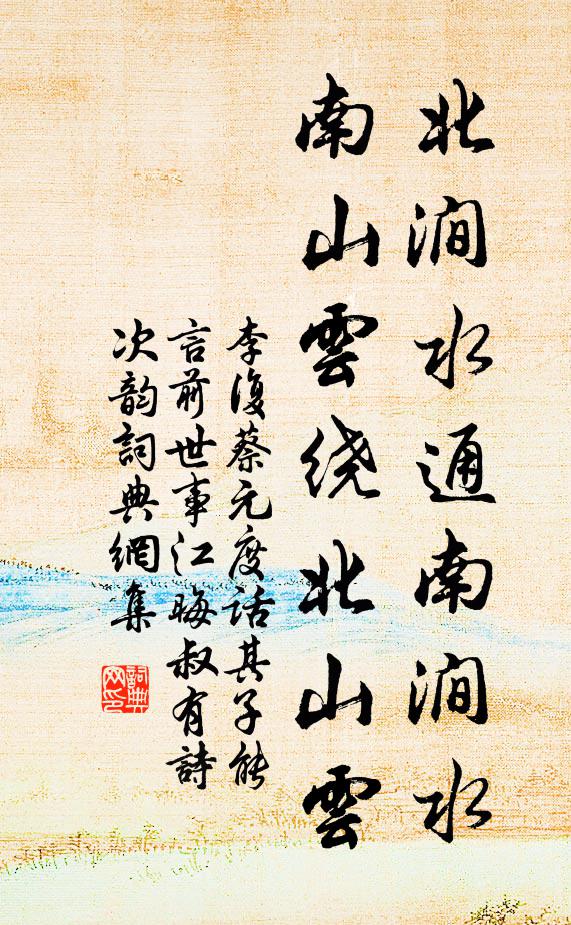 北涧水通南涧水
南山雲绕北山雲
李復蔡元度话其子能
言前世事江晦叔有詩
次韵詞典網集
詞典
网印